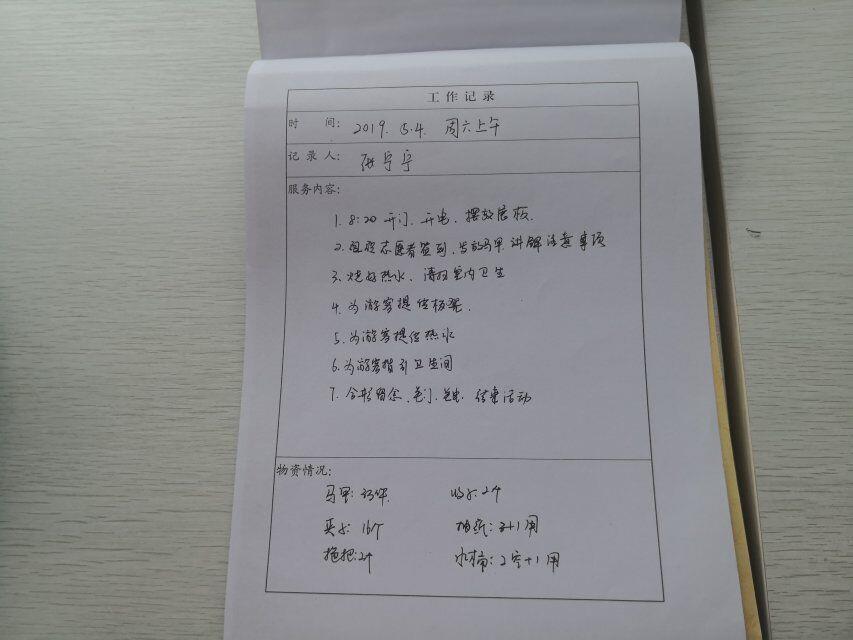 工作记录
时 间: 2019. 5.4. 周六上午
记录人: 张宁宁
服务内容:
1. 8:20 开门、开电、摆放展板.
2. 组织志愿者签到、发放马甲 讲解注意事项
3. 烧好热水、清扫室内卫生
4. 为游客提供板凳.
5. 为游客提供热水
6. 为游客指引卫生间
7. 合影留念、关门、关电、结束活动
物资情况:
马甲: 2个
夹子: 16个 抽纸: 3+1用
拖把: 2个 水桶: 2空+1用